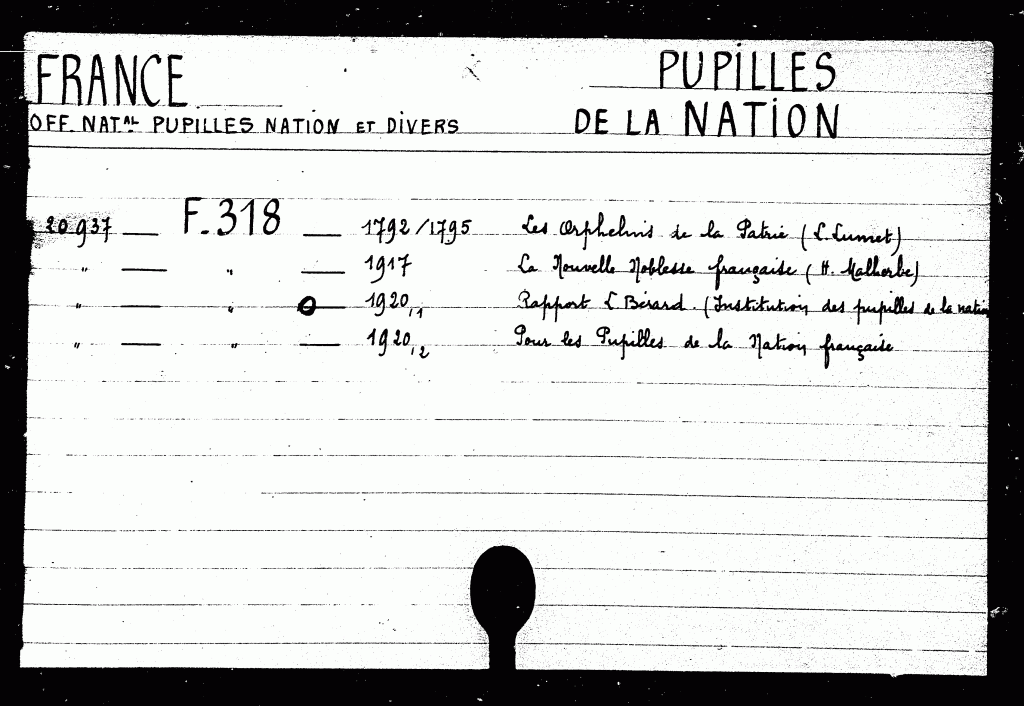 FRANCE PUPILLES
OFF. NATAL PUPILLES NATION ET DIVERS DE LA NATION
20937 — F.318 — 1792/1795 Les Orphelins de la Patrie (L. Lumet)
" — " — 1917 La Nouvelle Noblesse française (H. Malherbe)
" — " — 1920,1 Rapport L Bérard. (Institution des pupilles de la nation
" — " — 1920,2 Pour les Pupilles de la Nation française